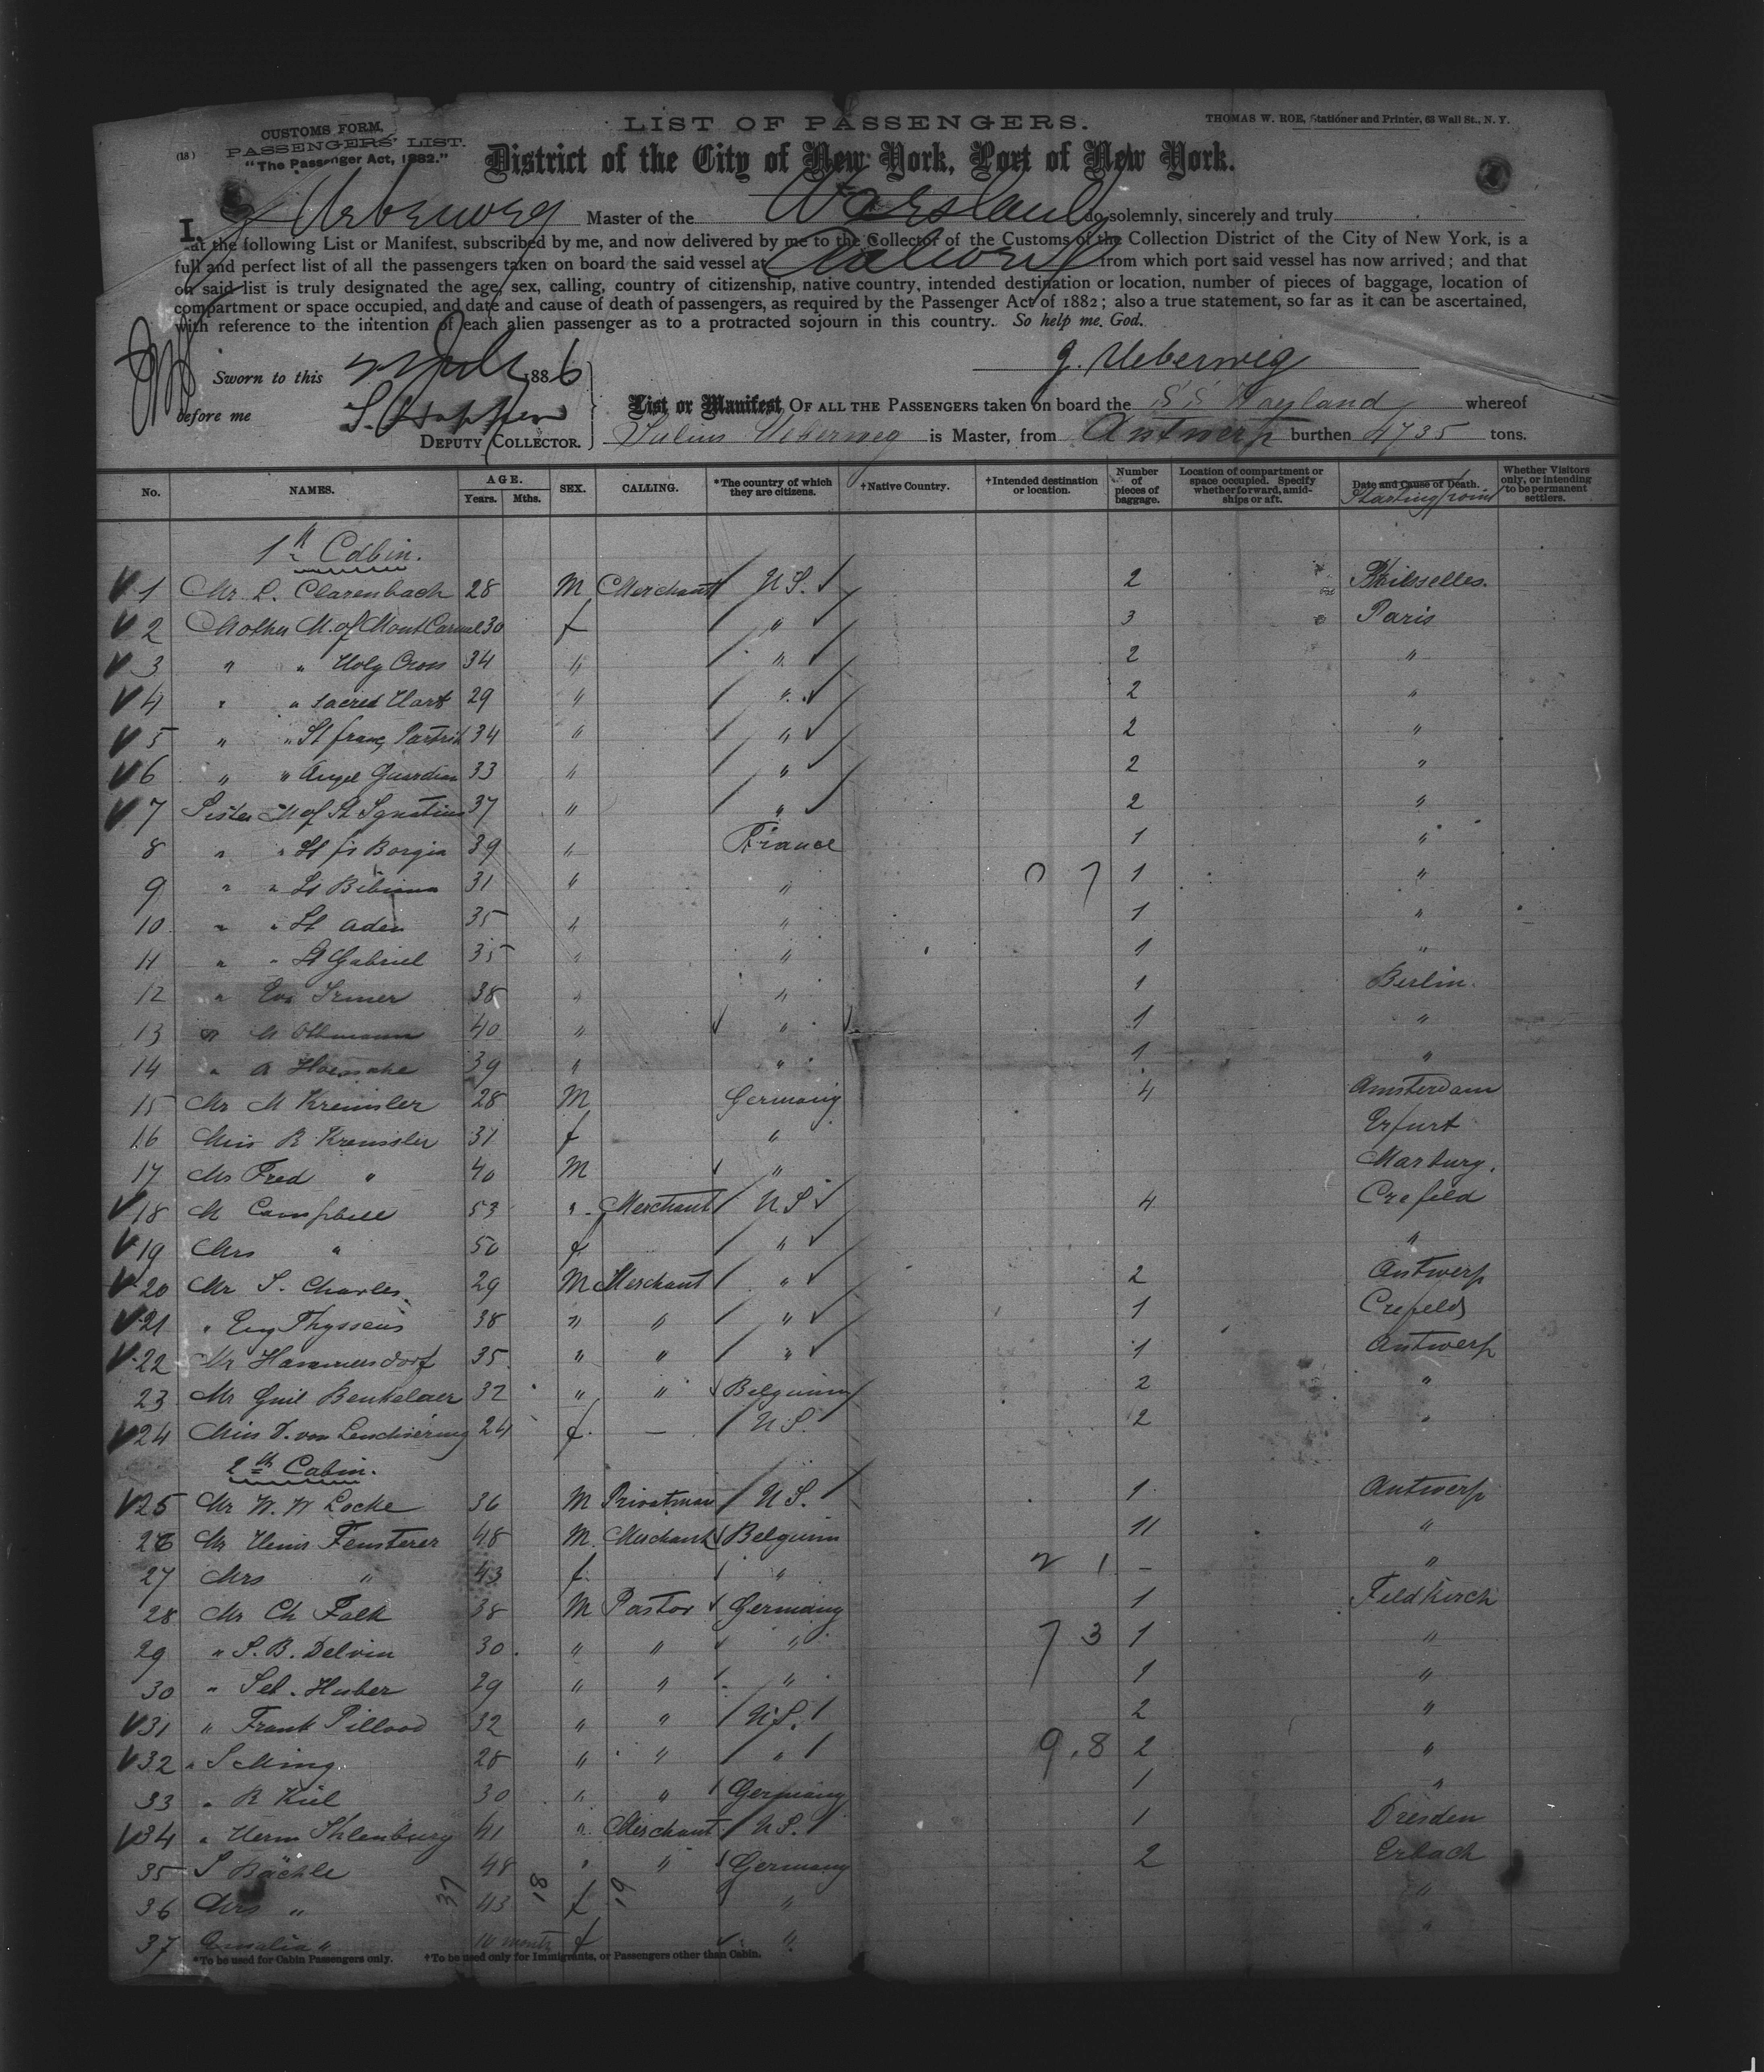 CUSTOMS FORM.
LIST OF PASSENGERS.
THOMAS W. ROE, Stationer and Printer, 63 Wall St., N. Y.
(18) PASSENGERS' LIST.
"The Passenger Act, 1882."
District of the City of New York, Port of New York.
I, J Ueberweg Master of the Waesland do solemnly, sincerely and truly
at the following List or Manifest, subscribed by me, and now delivered by me to the Collector of the Customs of the Collection District of the City of New York, is a
full and perfect list of all the passengers taken on board the said vessel at Antwerp from which port said vessel has now arrived; and that
on said list is truly designated the age, sex, calling, country of citizenship, native country, intended destination or location, number of pieces of baggage, location of
compartment or space occupied, and date and cause of death of passengers, as required by the Passenger Act of 1882; also a true statement, so far as it can be ascertained,
with reference to the intention of each alien passenger as to a protracted sojourn in this country. So help me God.
J. Ueberweg
Sworn to this 1886
before me
DEPUTY COLLECTOR.
List or Manifest OF ALL THE PASSENGERS taken on board the SS Waesland whereof
Julius Ueberweg is Master, from Antwerp burthen 4735 tons.
No. NAMES. AGE. Years. Mths. SEX. CALLING. *The country of which they are citizens. †Native Country. †Intended destination or location. Number of pieces of baggage. Location of compartment or space occupied. Specify whether forward, amidships or aft. Date and Cause of Death. Starting point Whether Visitors only, or intending to be permanent settlers.
1th Cabin.
1 Mr L. Clarenbach 28 M Merchant U S. 2
2 Mother M. of Mont Carmel 30 f " 3 Paris
3 " " Holy Cross 34 " " 2 "
4 " " Sacred Hart 29 " " 2 "
5 " " St franç 34 " " 2 "
6 " " Angel Guardian 33 " " 2 "
7 Sister M of St Ignatius 37 " " 2 "
8 " " St frs Borgia 39 " France 1 "
9 " " St Bibiana 31 " " 0 7 1 "
10 " " St 35 " " 1 "
11 " " St Gabriel 35 " " 1 "
12 " Eva Irmer 38 " " 1 Berlin.
13 " M 40 " " 1 "
14 " A 39 " " 1 "
15 Mr M Kreussler 28 M Germany 4 Amsterdam
16 Miss R Kreussler 31 f " Erfurt
17 Mr Fred " 40 M " Marburg.
18 M Campbell 53 " Merchant U S 4 Crefeld
19 Mrs " 50 f " "
20 Mr S. Charles 29 M Merchant " 2 Antwerp
21 " Eug Thyssens 38 " " " 1 Crefeld
22 Mr Hammersdorf 35 " " " 1 Antwerp
23 Mr Guil Beukelaer 32 " " Belguim 2 "
24 Miss 24 f. — U S. 2 "
2th Cabin.
25 Mr W. W Locke 36 M Privatman U S. 1 Antwerp
26 Mr Fensterer 48 M. Merchant Belguim 11 "
27 Mrs " 43 f. " 2 1 - "
28 Mr Ch Falk 38 M Pastor Germany 1 Feldkirch
29 " S. B. Delvin 30 " " " 7 3 1 "
30 " Seb. Huber 29 " " " 1 "
31 " Frank Pillood 32 " " U.S. 2 "
32 " 28 " " " 9.8 2 "
33 " R Kiel 30 " " Germany 1 "
34 " Herm Ihlenburg 41 " Merchant U.S. 1 Dresden
35 S Bächle 48 " " Germany 2 Erbach
36 Mrs " 43 f " "
37 Amalia " 10 months f " "
37 18 19
*To be used for Cabin Passengers only. †To be used only for Immigrants, or Passengers other than Cabin.